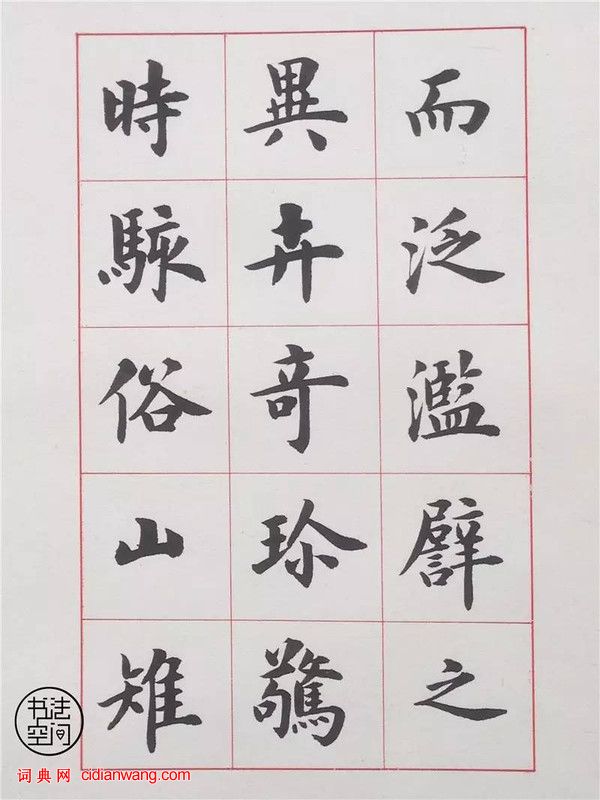 而泛濫譬之
異卉奇珍驚
時駭俗山雉
书法空间
词典网 cidianwang.com